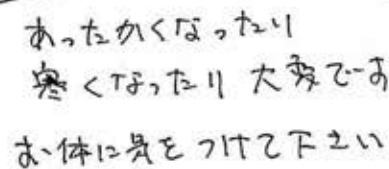 あったかくなったり
寒くなったり 大変です
お体に気をつけて下さい